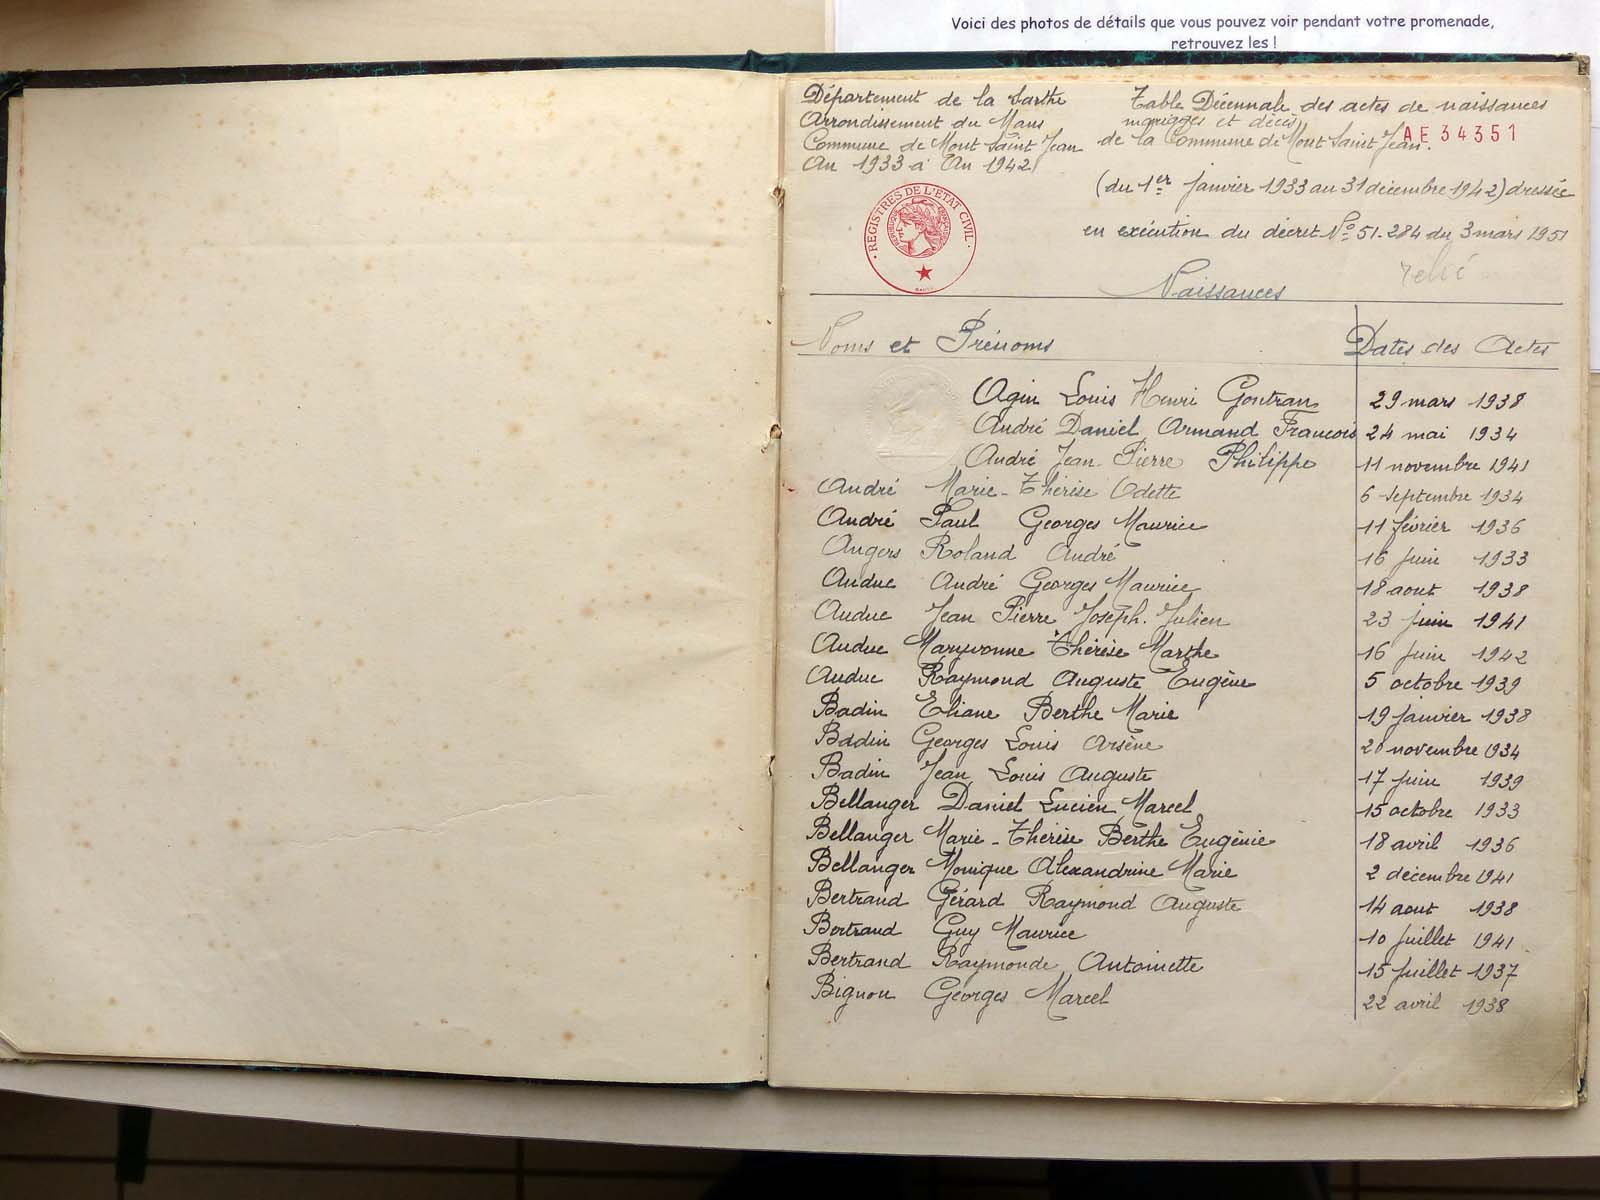 Voici des photos de détails que vous pouvez voir pendant votre promenade,
retrouvez les !
Département de la Sarthe
Arrondissement du Mans
Commune de Mont Saint Jean
An 1933 à An 1942
Table Décennale des actes de naissances
mariages et décès
de la Commune de Mont Saint Jean.
AE 34351
(du 1er Janvier 1933 au 31 décembre 1942) dressée
en exécution du décret No 51-284 du 3 mars 1951
REGISTRES DE L'ETAT CIVIL
Naissances
Noms et Prénoms
Dates des Actes
Agin Louis Henri Gontran 29 mars 1938
André Daniel Armand Francois 24 mai 1934
André Jean-Pierre Philippe 11 novembre 1941
André Marie-Thérèse Odette 6 septembre 1934
André Paul Georges Maurice 11 février 1936
Angers Roland André 16 juin 1933
Auduc André Georges Maurice 18 aout 1938
Auduc Jean Pierre Joseph. Julien 23 juin 1941
Auduc Maryvonne Thérèse Marthe 16 juin 1942
Auduc Raymond Auguste Eugène 5 octobre 1939
Badin Eliane Berthe Marie 19 janvier 1938
Badin Georges Louis Arsène 20 novembre 1934
Badin Jean Louis Auguste 17 juin 1939
Bellanger Daniel Lucien Marcel 15 octobre 1933
Bellanger Marie-Thérèse Berthe Eugénie 18 avril 1936
Bellanger Monique Alexandrine Marie 2 décembre 1941
Bertrand Gérard Raymond Auguste 14 aout 1938
Bertrand Guy Maurice 10 juillet 1941
Bertrand Raymonde Antoinette 15 juillet 1937
Bignon Georges Marcel 22 avril 1938